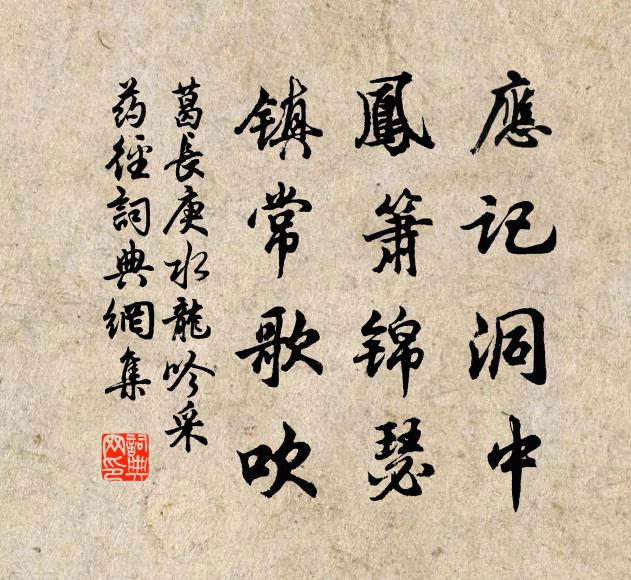 應記洞中
鳳簫锦瑟
镇常歌吹
葛長庚水龍吟采
药徑詞典網集
詞典
网印